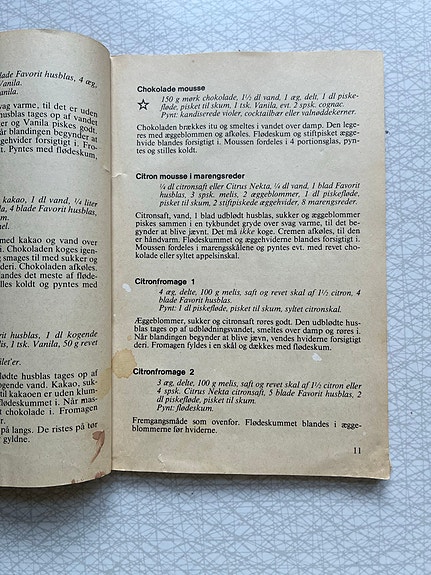 lade Favorit husblas, 4 æg,
Vanila.
vanila.
svag varme, til det er uden
husblas tages op af vandet
er og Vanila piskes godt.
år blandingen begynder at
ggehvider forsigtigt i. Fro-
t. Pyntes med flødeskum,
kakao, 1 dl vand, ¼ liter
la, 4 blade Favorit husblas,
um.
med kakao og vand over
deri. Chokoladen koges igen-
s til med sukker og
i. Chokoladen afkøles.
andes det meste af fløde-
lles koldt og pyntes med
rit husblas, 1 dl kogende
is, 1 tsk. Vanila, 50 g revet
ilet'er.
lødte husblas tages op af
kogende vand. Kakao, suk-
til kakaoen er uden klum-
flødeskummet i. Når mas-
t chokolade i. Fromagen
på langs. De ristes på tør
gyldne.
Chokolade mousse
150 g mørk chokolade, 1½ dl vand, 1 æg, delt, 1 dl piske-
fløde, pisket til skum, 1 tsk. Vanila, evt. 2 spsk. cognac.
Pynt: kandiserede violer, cocktailbær eller valnøddekerner.
Chokoladen brækkes itu og smeltes i vandet over damp. Den lege-
res med æggeblommen og afkøles. Flødeskum og stiftpisket ægge-
hvide blandes forsigtigt i. Moussen fordeles i 4 portionsglas, pyn-
tes og stilles koldt.
Citron mousse i marengsreder
¼ dl citronsaft eller Citrus Nekta, ¼ dl vand, 1 blad Favorit
husblas, 3 spsk. melis, 2 æggeblommer, 1 dl piskefløde,
pisket til skum, 2 stiftpiskede æggehvider, 8 marengsreder.
Citronsaft, vand, 1 blad udblødt husblas, sukker og æggeblommer
piskes sammen i en tykbundet gryde over svag varme, til det be-
gynder at blive jævnt. Det må ikke koge. Cremen afkøles, til den
er håndvarm. Flødeskummet og æggehviderne blandes forsigtigt i.
Moussen fordeles i marengsskålene og pyntes evt. med revet cho-
kolade eller syltet appelsinskal.
Citronfromage 1
4 æg, delte, 100 g melis, saft og revet skal af 1½ citron, 4
blade Favorit husblas.
Pynt: 1 dl piskefløde, pisket til skum, syltet citronskal.
Æggeblommer, sukker og citronsaft røres godt. Den udblødte hus-
blas tages op af udblødningsvandet, smeltes over damp og røres i.
Når blandingen begynder at blive jævn, vendes hviderne forsigtigt
deri. Fromagen fyldes i en skål og dækkes med flødeskum.
Citronfromage 2
3 æg, delte, 100 g melis, saft og revet skal af 1½ citron eller
4 spsk. Citrus Nekta citronsaft, 5 blade Favorit husblas, 2
dl piskefløde, pisket til skum.
Pynt: flødeskum.
Fremgangsmåde som ovenfor. Flødeskummet blandes i ægge-
blommerne før hviderne.
11